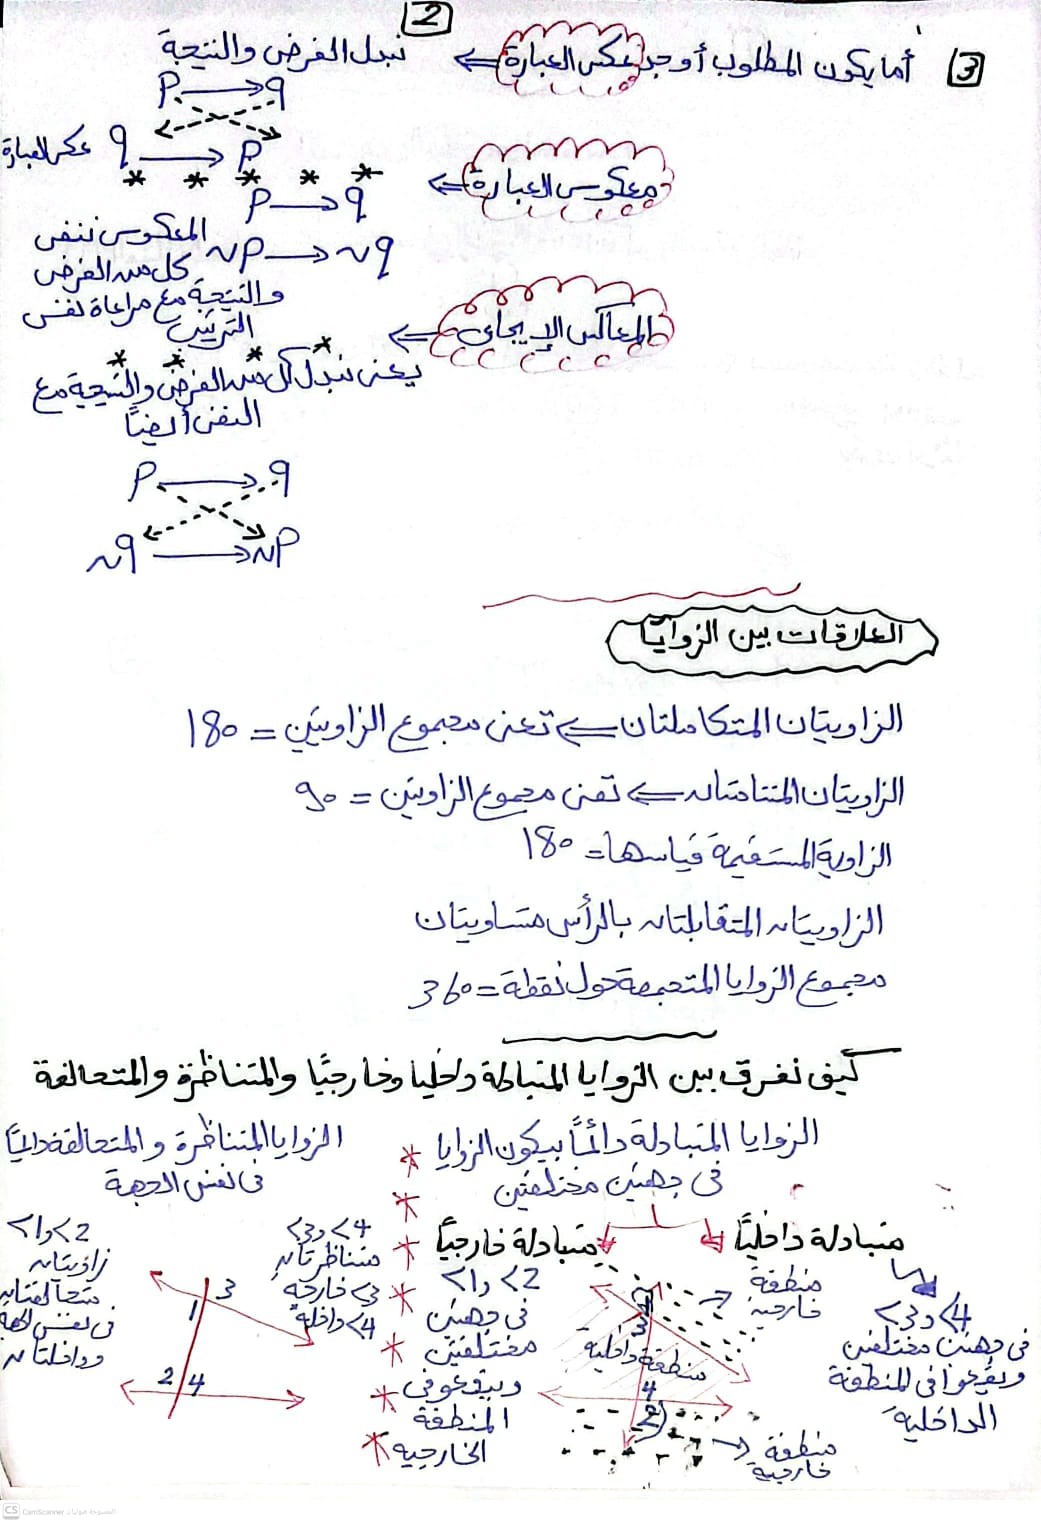 2
3 أما يكون المطلوب أوجد عكس العبارة ⇐ نبدل الفرض والنتيجة
P → q
q → P عكس العبارة
* * * * *
معكوس العبارة ⇐
P → q
~P → ~q
المعكوس ننفى
كل من الفرض
والنتيجة مع مراعاة نفس
الترتيب
المعاكس الإيجابى ⇐
* * * *
يعنى نبدل كل من الفرض والنتيجة مع
النفى أيضاً
P → q
~q → ~P
العلاقات بين الزوايا
الزاويتان المتكاملتان ⇐ تعنى مجموع الزاويتين = 180
الزاويتان المتتامتان ⇐ تعنى مجموع الزاويتين = 90
الزاوية المستقيمة قياسها = 180
الزاويتان المتقابلتان بالرأس متساويتان
مجموع الزوايا المتجمعة حول نقطة = 360
كيف نفرق بين الزوايا المتبادلة داخليا وخارجيًا والمتناظرة والمتحالفة
الزوايا المتبادلة دائمًا بيكون الزوايا
فى جهتين مختلفتين
متبادلة داخليًا
>3 و >4
فى جهتين مختلفتين
وبيقعوا فى المنطقة
الداخلية
متبادلة خارجيًا
>1 و >2
فى جهتين
مختلفتين
وبيقعوا فى
المنطقة
الخارجيه
منطقة
خارجية
1
3
منطقة داخلية
4
2
منطقة
خارجية
* * * * * * * *
الزوايا المتناظرة والمتحالفة دائمًا
فى نفس الجهة
>3 و >4
متناظرتان
>3 خارجة
>4 داخلة
>1 و >2
زاويتان
متحالفتان
فى نفس الجهة
وداخلتان
1 3
2 4
CS CamScanner الممسوحة ضوئيا بـ